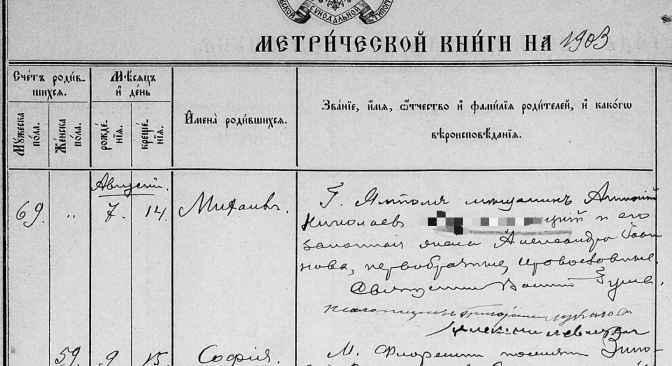 МЕТРИЧЕСКОЙ КНИГИ НА 1903
Счетъ родив-
шихся.
Мѣсяцъ
и день
Имена родившихся.
Званіе, имя, отчество и фамилія родителей, и какого
вѣроисповѣданія.
Мужеска
пола.
Женска
пола.
рожде-
нія.
креще-
нія.
Августъ.
69. „ 7. 14. Михаилъ.
Г. Ямполя мѣщанинъ Антоній
Николаевъ и его
законная жена Александра Іоан-
нова, первобрачные, православные.
Священникъ
59. 9 15. Софія.
М. Флорешты